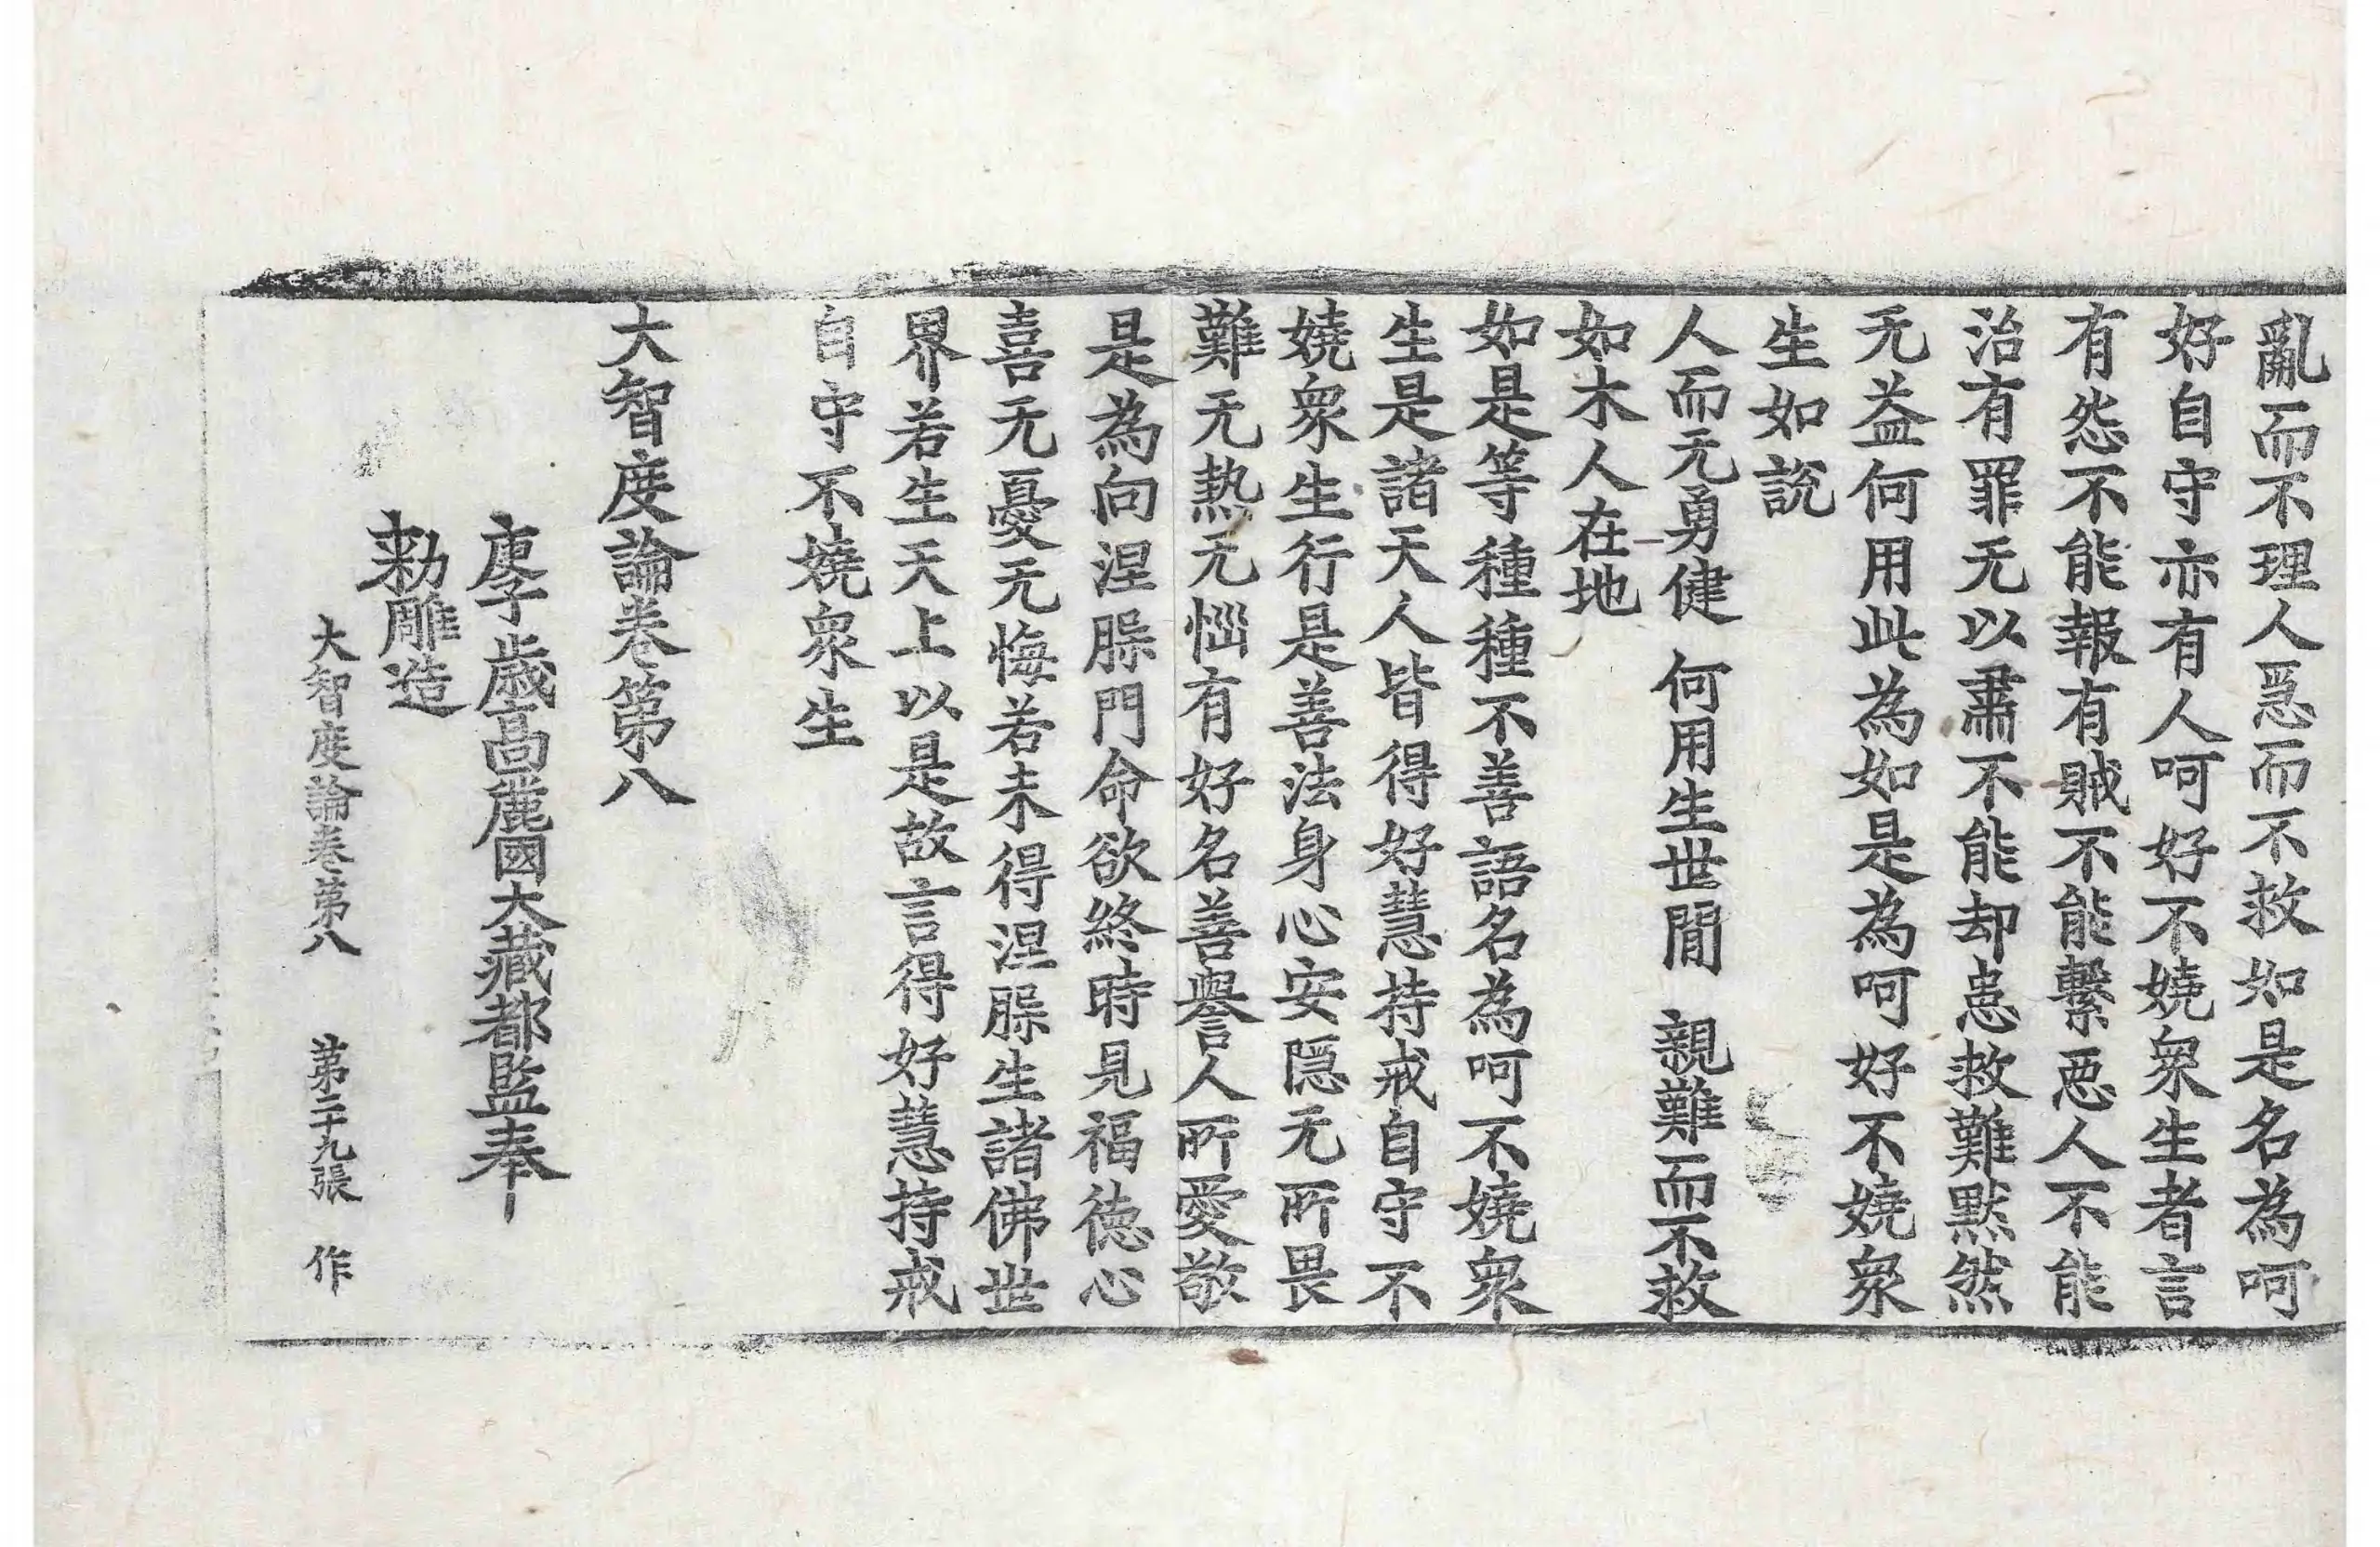 亂而不理人惡而不救如是名為呵
好自守亦有人呵好不嬈衆生者言
有怨不能報有賊不能繫惡人不能
治有罪无以肅不能却患救難默然
无益何用此為如是為呵好不嬈衆
生如說
人而无勇健　何用生世間　親難而不救
如木人在地
如是等種種不善語名為呵不嬈衆
生是諸天人皆得好慧持戒自守不
嬈衆生行是善法身心安隱无所畏
難无熱无惱有好名善譽人所愛敬
是為向涅槃門命欲終時見福德心
喜无憂无悔若未得涅槃生諸佛世
界若生天上以是故言得好慧持戒
自守不嬈衆生
大智度論卷第八
庚子歲高麗國大藏都監奉
勑雕造
大智度論卷第八　第二十九張　作